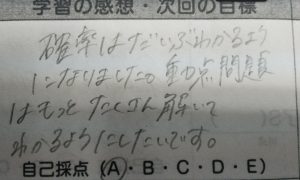 学習の感想・次回の目標
確率はだいぶわかるよう
になりました。動点問題
はもっとたくさん解いて
わかるようにしたいです。
自己採点（A・B・C・D・E）